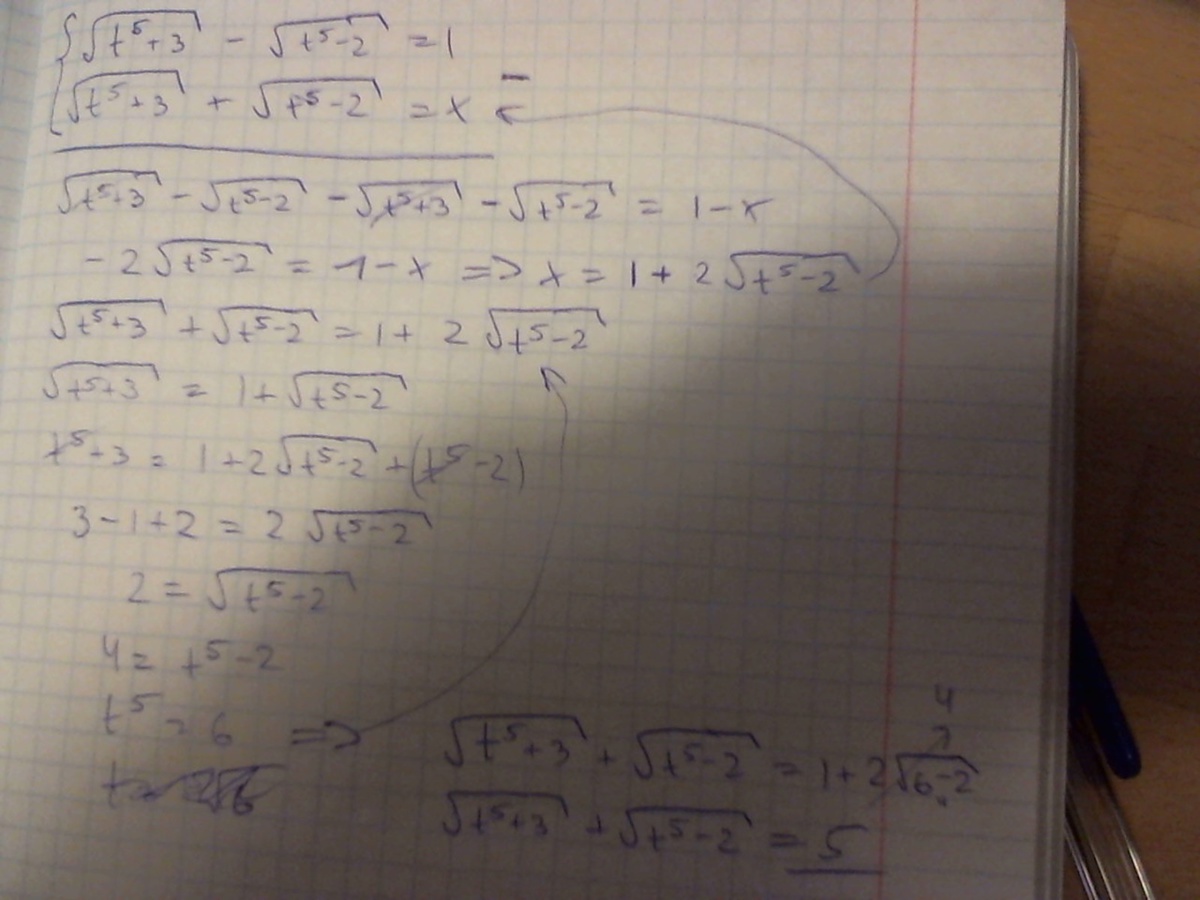 { √(t⁵+3) - √(t⁵-2) = 1
√(t⁵+3) + √(t⁵-2) = x ←
-
√(t⁵+3) - √(t⁵-2) - √(t⁵+3) - √(t⁵-2) = 1-x
-2√(t⁵-2) = 1-x => x = 1+2√(t⁵-2)
√(t⁵+3) + √(t⁵-2) = 1+2√(t⁵-2)
√(t⁵+3) = 1+√(t⁵-2)
t⁵+3 = 1+2√(t⁵-2)+(t⁵-2)
3-1+2 = 2√(t⁵-2)
2 = √(t⁵-2)
4 = t⁵-2
t⁵ = 6 =>
4
√(t⁵+3) + √(t⁵-2) = 1+2√(6-2)
√(t⁵+3) + √(t⁵-2) = 5